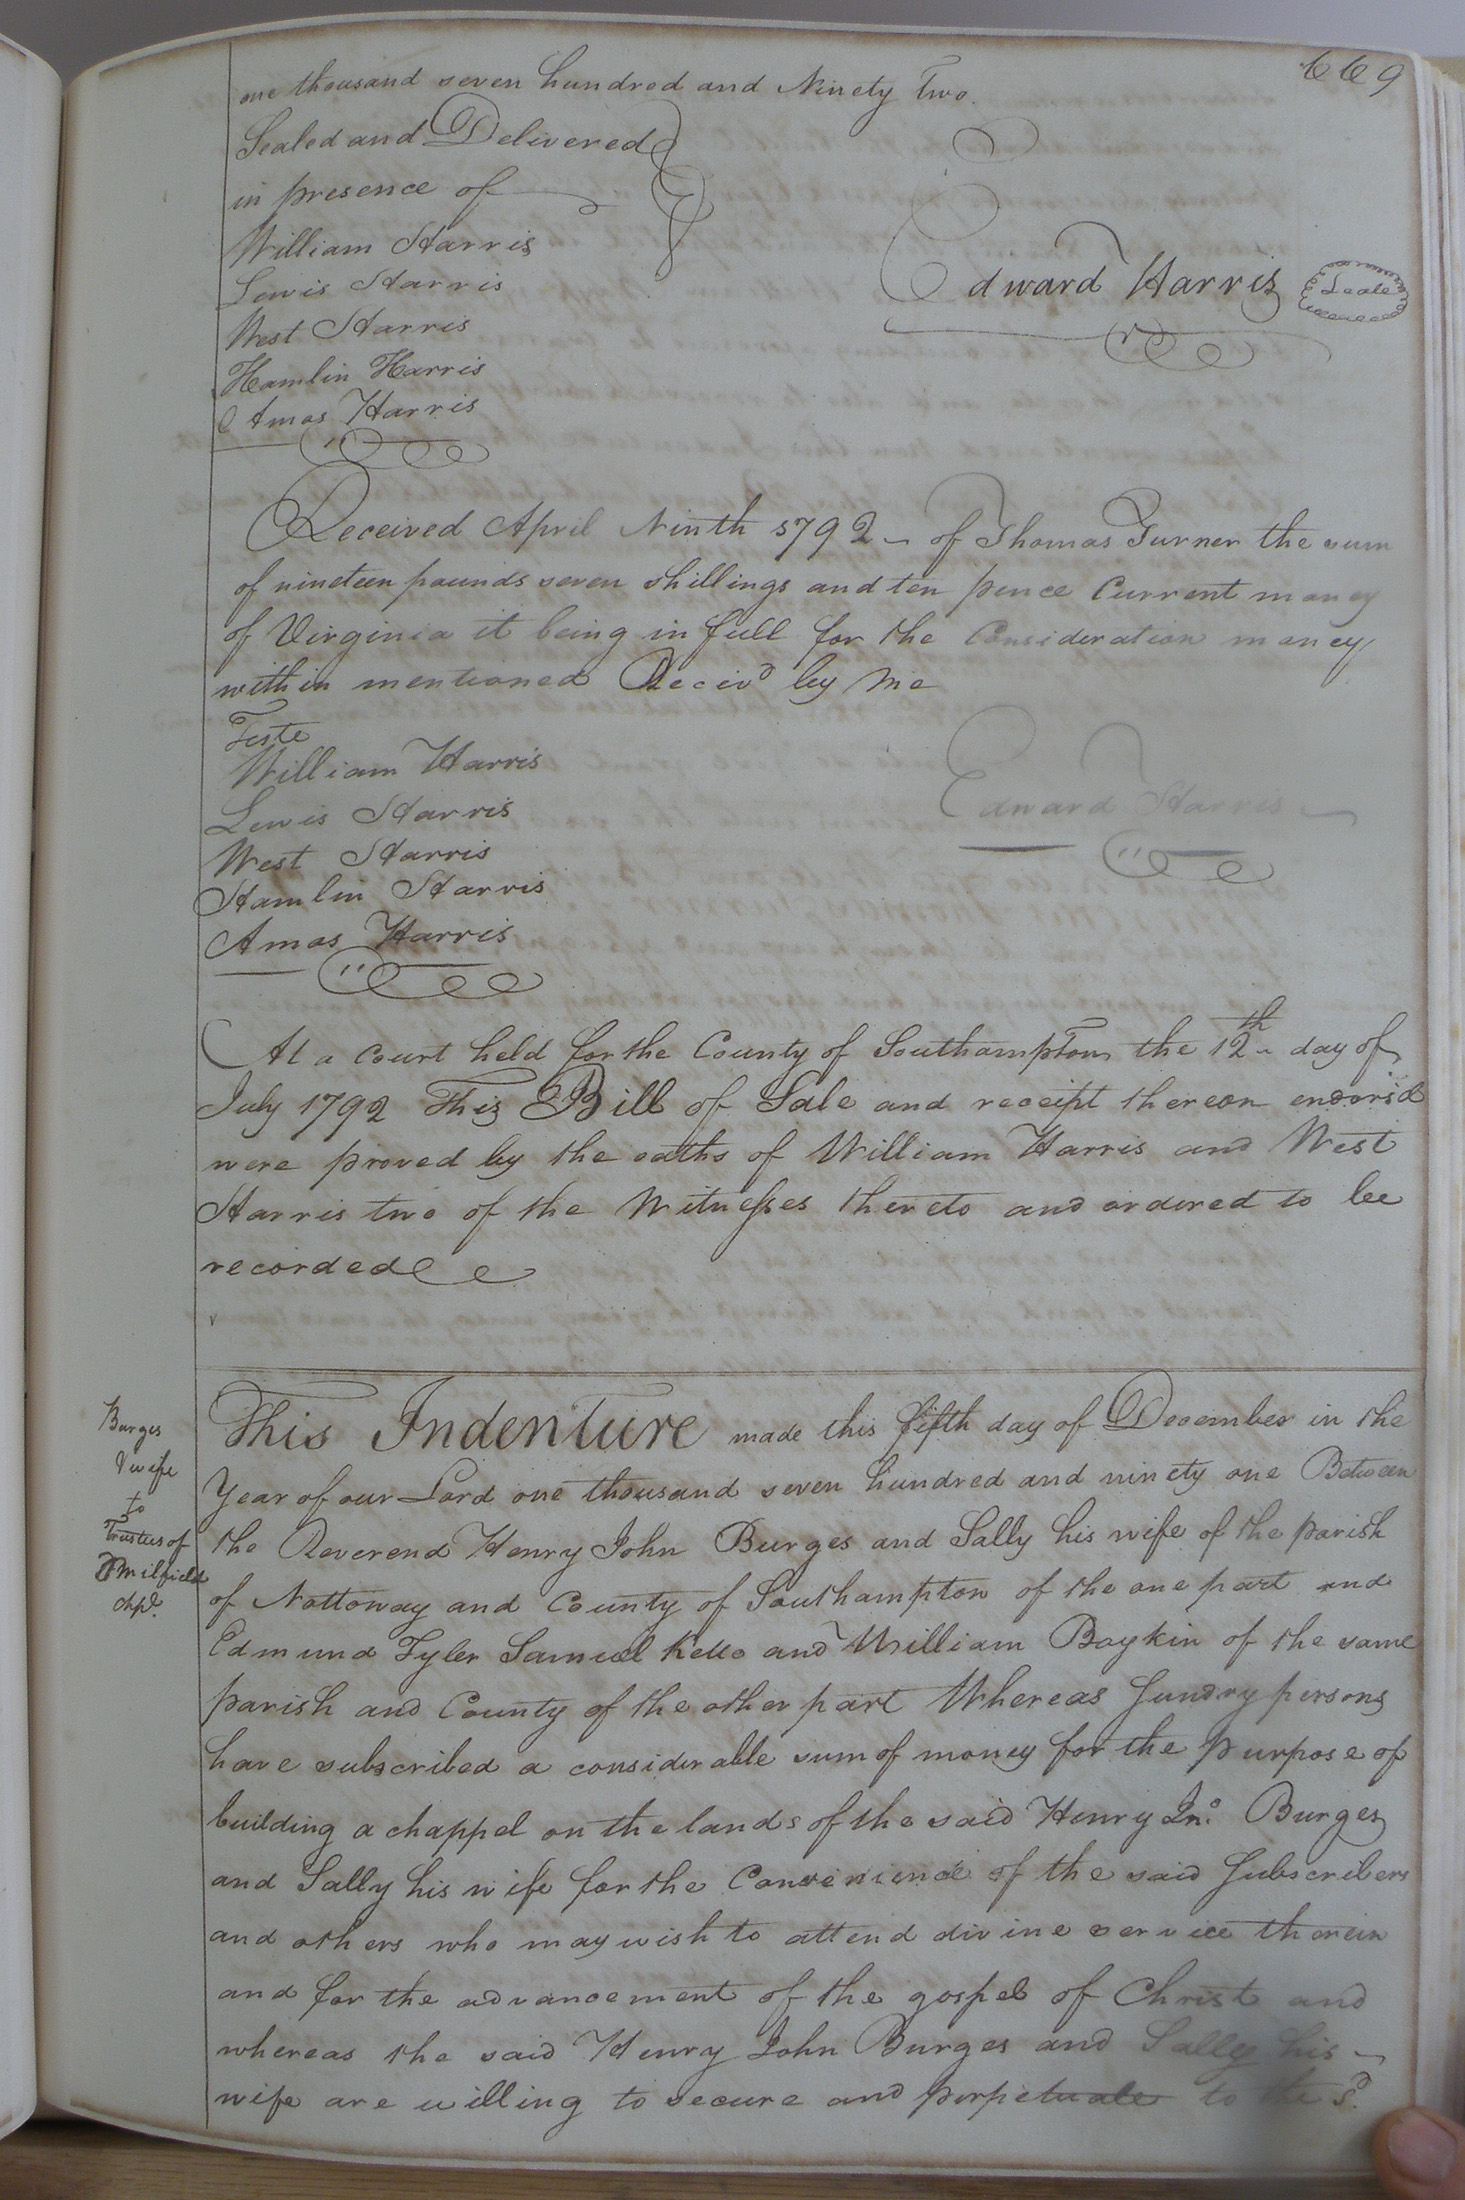 669
one thousand seven hundred and Ninety Two.
Sealed and Delivered
in presence of
William Harris
Lewis Harris
West Harris
Hamlin Harris
Amos Harris
Edward Harris Seale
Received April Ninth 1792 - of Thomas Turner the sum
of nineteen pounds seven shillings and ten pence Current money
of Virginia it being in full for the Consideration money
within mentioned Receivd by Me
Teste
William Harris
Lewis Harris
West Harris
Hamlin Harris
Amos Harris
Edward Harris
At a Court held for the County of Southampton the 12th day of
July 1792 This Bill of Sale and receipt thereon endorsd
were proved by the oaths of William Harris and West
Harris two of the Witnesses thereto and ordered to be
recorded
Burges
& wife
to
Trustees of
Milfield
chpl.
This Indenture made this fifth day of December in the
Year of our Lord one thousand seven hundred and ninety one Between
the Reverend Henry John Burges and Sally his wife of the parish
of Nottoway and County of Southampton of the one part and
Edmund Tyler Samuel Kello and William Boykin of the same
parish and County of the other part Whereas Sundry persons
have subscribed a considerable sum of money for the purpose of
building a chappel on the lands of the said Henry Jno. Burges
and Sally his wife for the Convenience of the said Subscribers
and others who may wish to attend divine service therein
and for the advancement of the gospel of Christ and
whereas the said Henry John Burges and Sally his
wife are willing to secure and perpetuate to the sd.